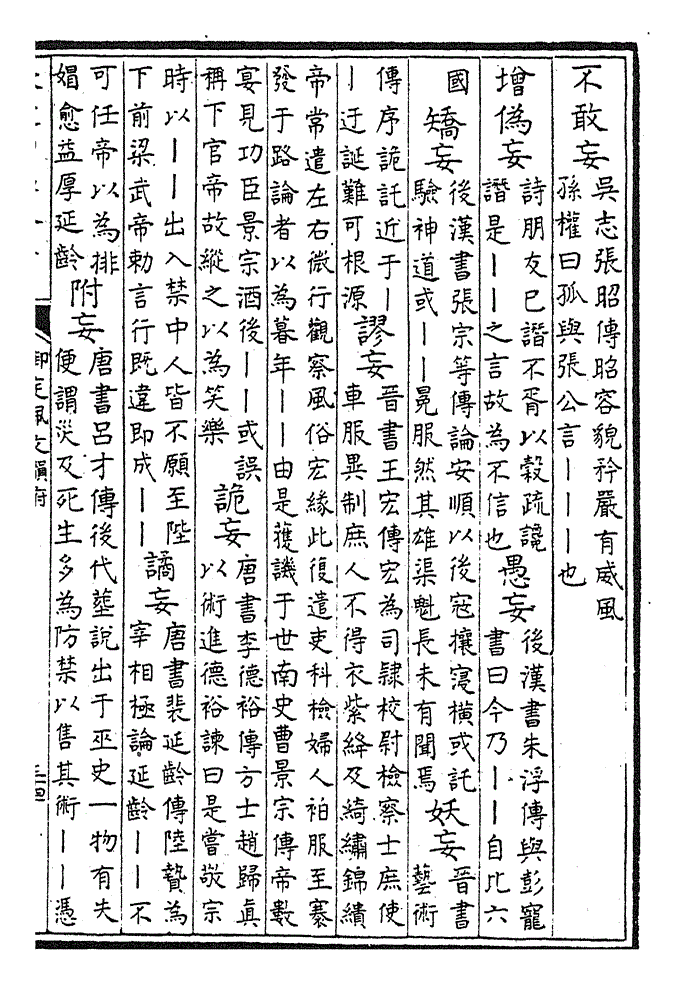 不敢妄吳志張昭傳昭容貌矜嚴有威風
孫權曰孤與張公言｜｜｜也
增偽妄詩朋友已譖不胥以穀疏讒
譖是｜｜之言故為不信也愚妄後漢書朱浮傳與彭寵
書曰今乃｜｜自比六
國矯妄後漢書張宗等傳論安順以後冦攘寖橫或託
驗神道或｜｜冕服然其雄渠魁長未有聞焉妖妄晉書
藝術
傳序詭託近于｜
｜迂誕難可根源謬妄晉書王宏傳宏為司隸校尉檢察士庶使
車服異制庶人不得衣紫絳及綺繡錦繢
帝常遣左右微行觀察風俗宏緣此復遣吏科檢婦人袙服至褰
發于路論者以為暮年｜｜由是獲譏于世南史曹景宗傳帝數
宴見功臣景宗酒後｜｜或誤
稱下官帝故縱之以為笑樂詭妄唐書李德裕傳方士趙歸真
以術進德裕諫曰是嘗敬宗
時以｜｜出入禁中人皆不願至陛
下前梁武帝勅言行既違即成｜｜譎妄唐書裴延齡傳陸贄為
宰相極論延齡｜｜不
可任帝以為排
媢愈益厚延齡附妄唐書呂才傳後代塟說出于巫史一物有失
便謂災及死生多為防禁以售其術｜｜憑
御定佩文韻府